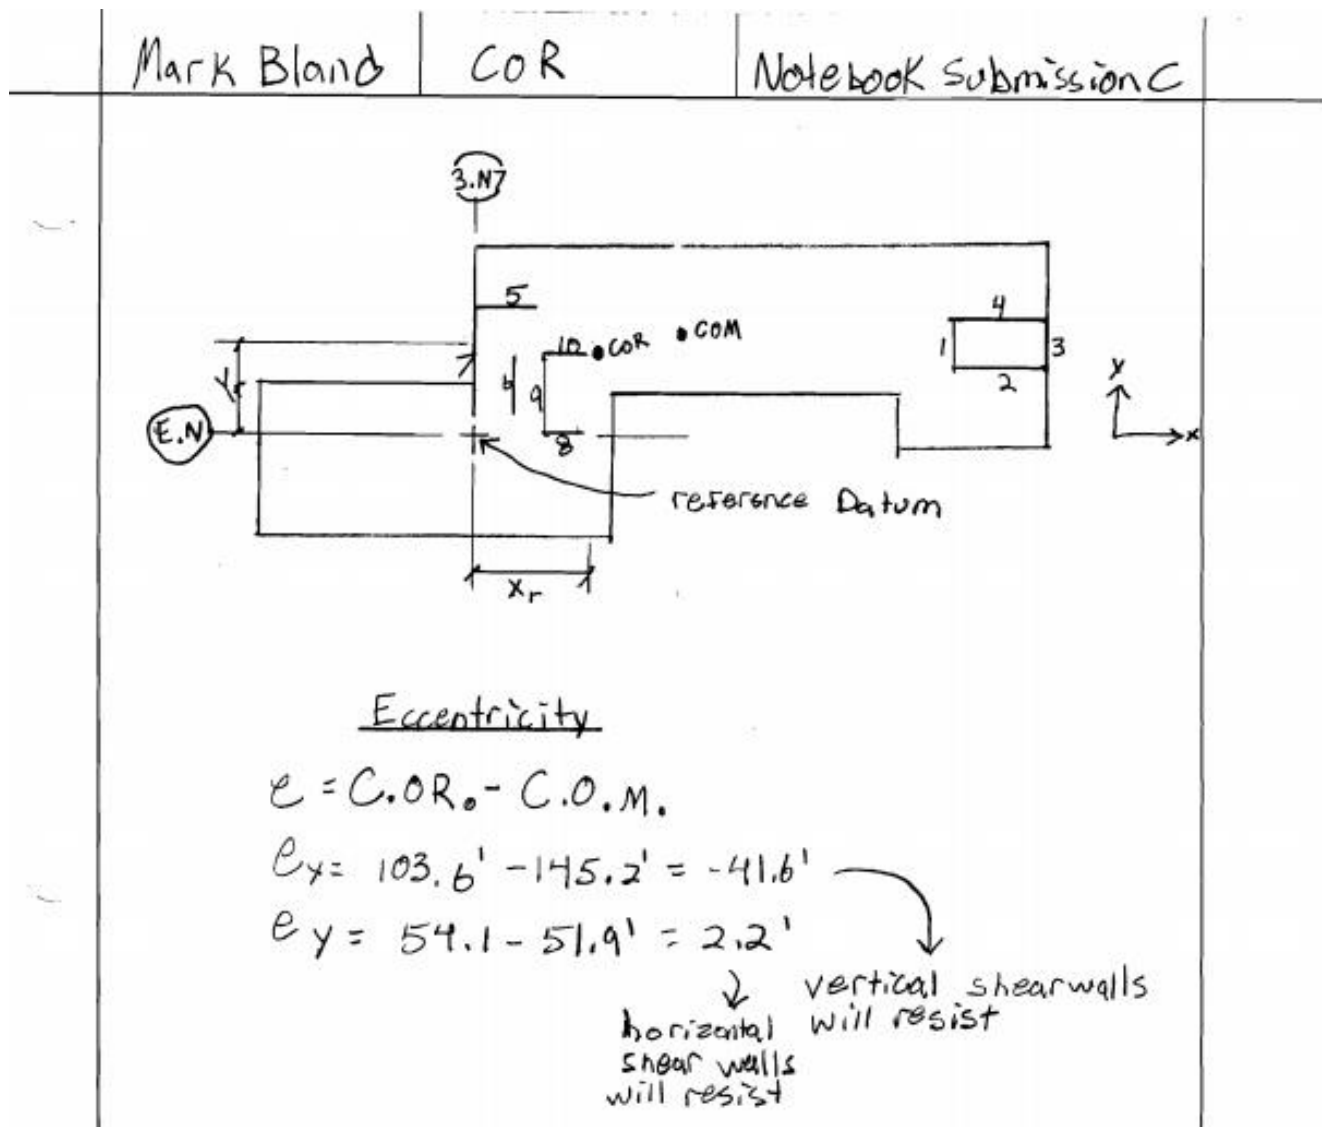 Mark Bland
COR
Notebook Submission C
3.N7
5
4
COM
10
COR
1
3
6
9
2
y
Yr
E.N
8
x
reference Datum
xr
Eccentricity
e = C.OR. - C.O.M.
ex = 103.6' - 145.2' = -41.6'
ey = 54.1 - 51.9' = 2.2'
vertical shearwalls
will resist
horizontal
shear walls
will resist